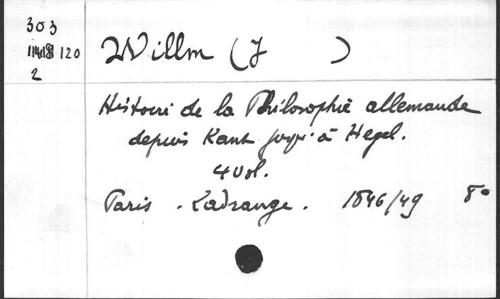 303
120
2
Willm (J )
Histoire de la Philosophie allemande
depuis Kant jusqu'à Hegel.
4 vol.
Paris . Ladrange . 1846/49 8°